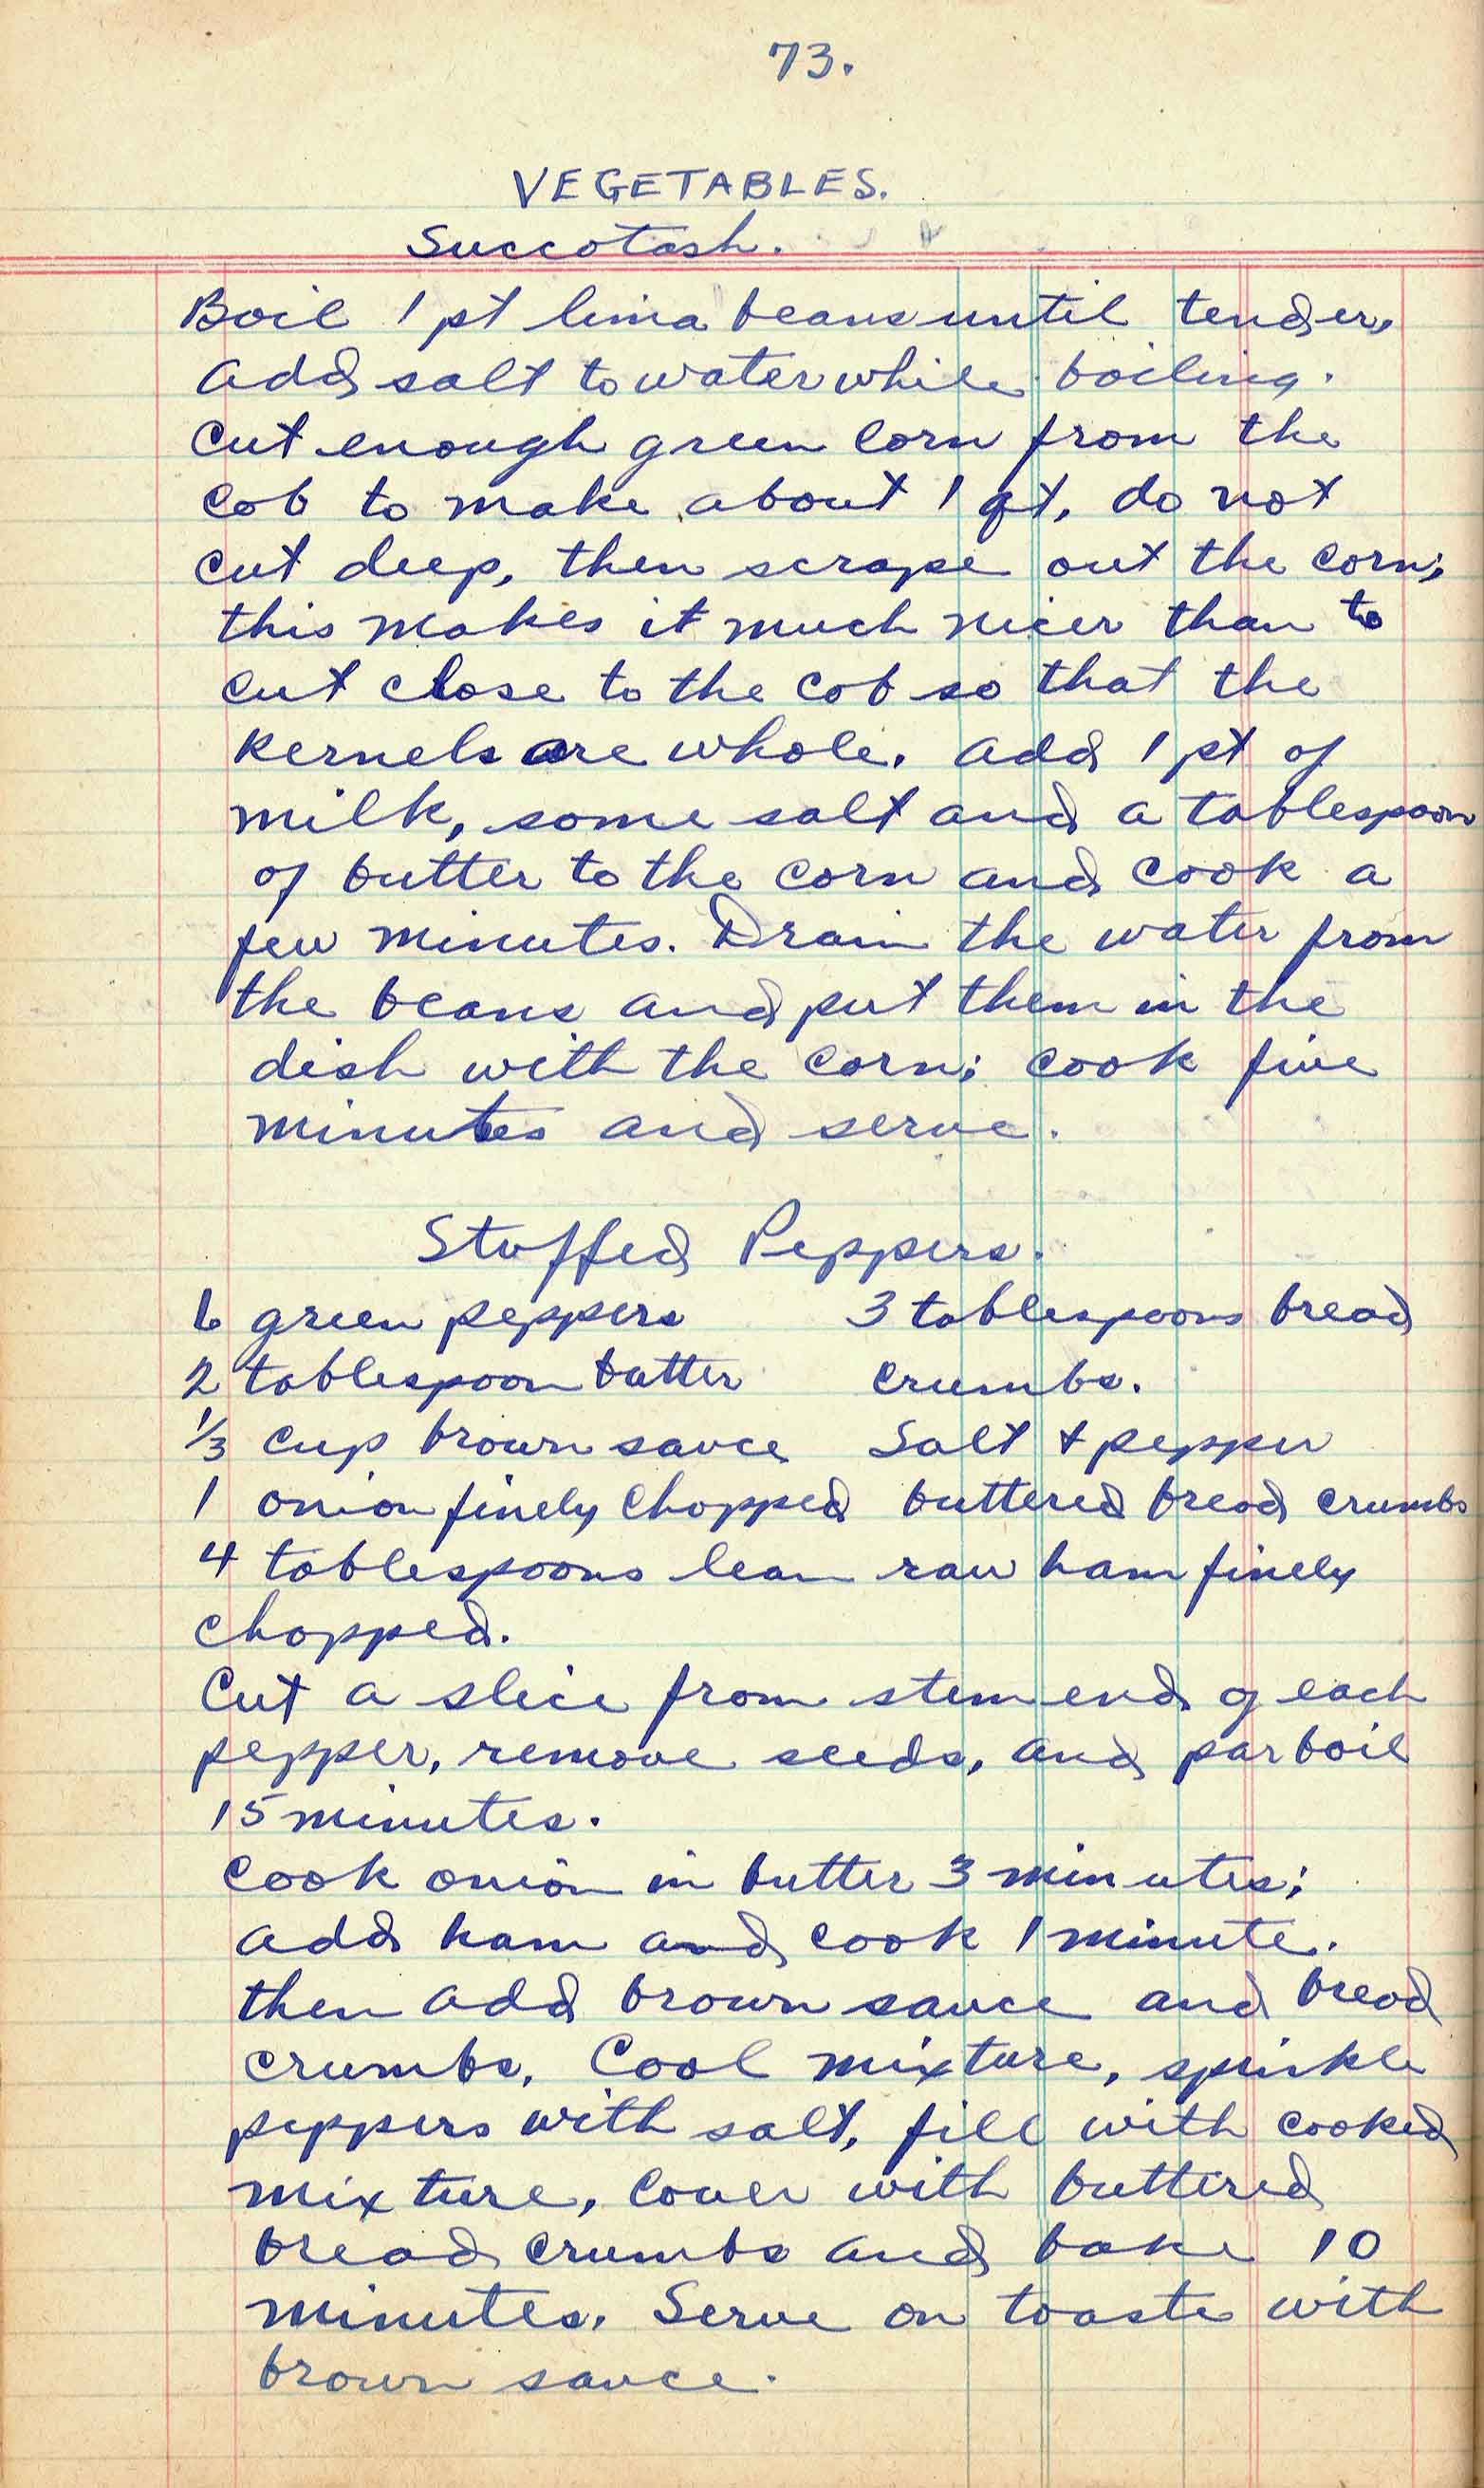 73.
VEGETABLES.
Succotash.
Boil 1 pt lima beans until tender,
add salt to water while boiling.
cut enough green corn from the
cob to make about 1 qt, do not
cut deep, then scrape out the corn;
this makes it much nicer than to
cut close to the cob so that the
kernels are whole. add 1 pt of
milk, some salt and a tablespoon
of butter to the corn and cook a
few minutes. Drain the water from
the beans and put them in the
dish with the corn; cook five
minutes and serve.
Stuffed Peppers.
6 green peppers 3 tablespoons bread
2 tablespoon butter crumbs.
1/3 cup brown sauce Salt & pepper
1 onion finely chopped buttered bread crumbs
4 tablespoons lean raw ham finely
chopped.
Cut a slice from stem end of each
pepper, remove seeds, and parboil
15 minutes.
Cook onion in butter 3 minutes;
add ham and cook 1 minute.
then add brown sauce and bread
crumbs. Cool mixture, sprinkle
peppers with salt, fill with cooked
mixture, cover with buttered
bread crumbs and bake 10
minutes. Serve on toast with
brown sauce.